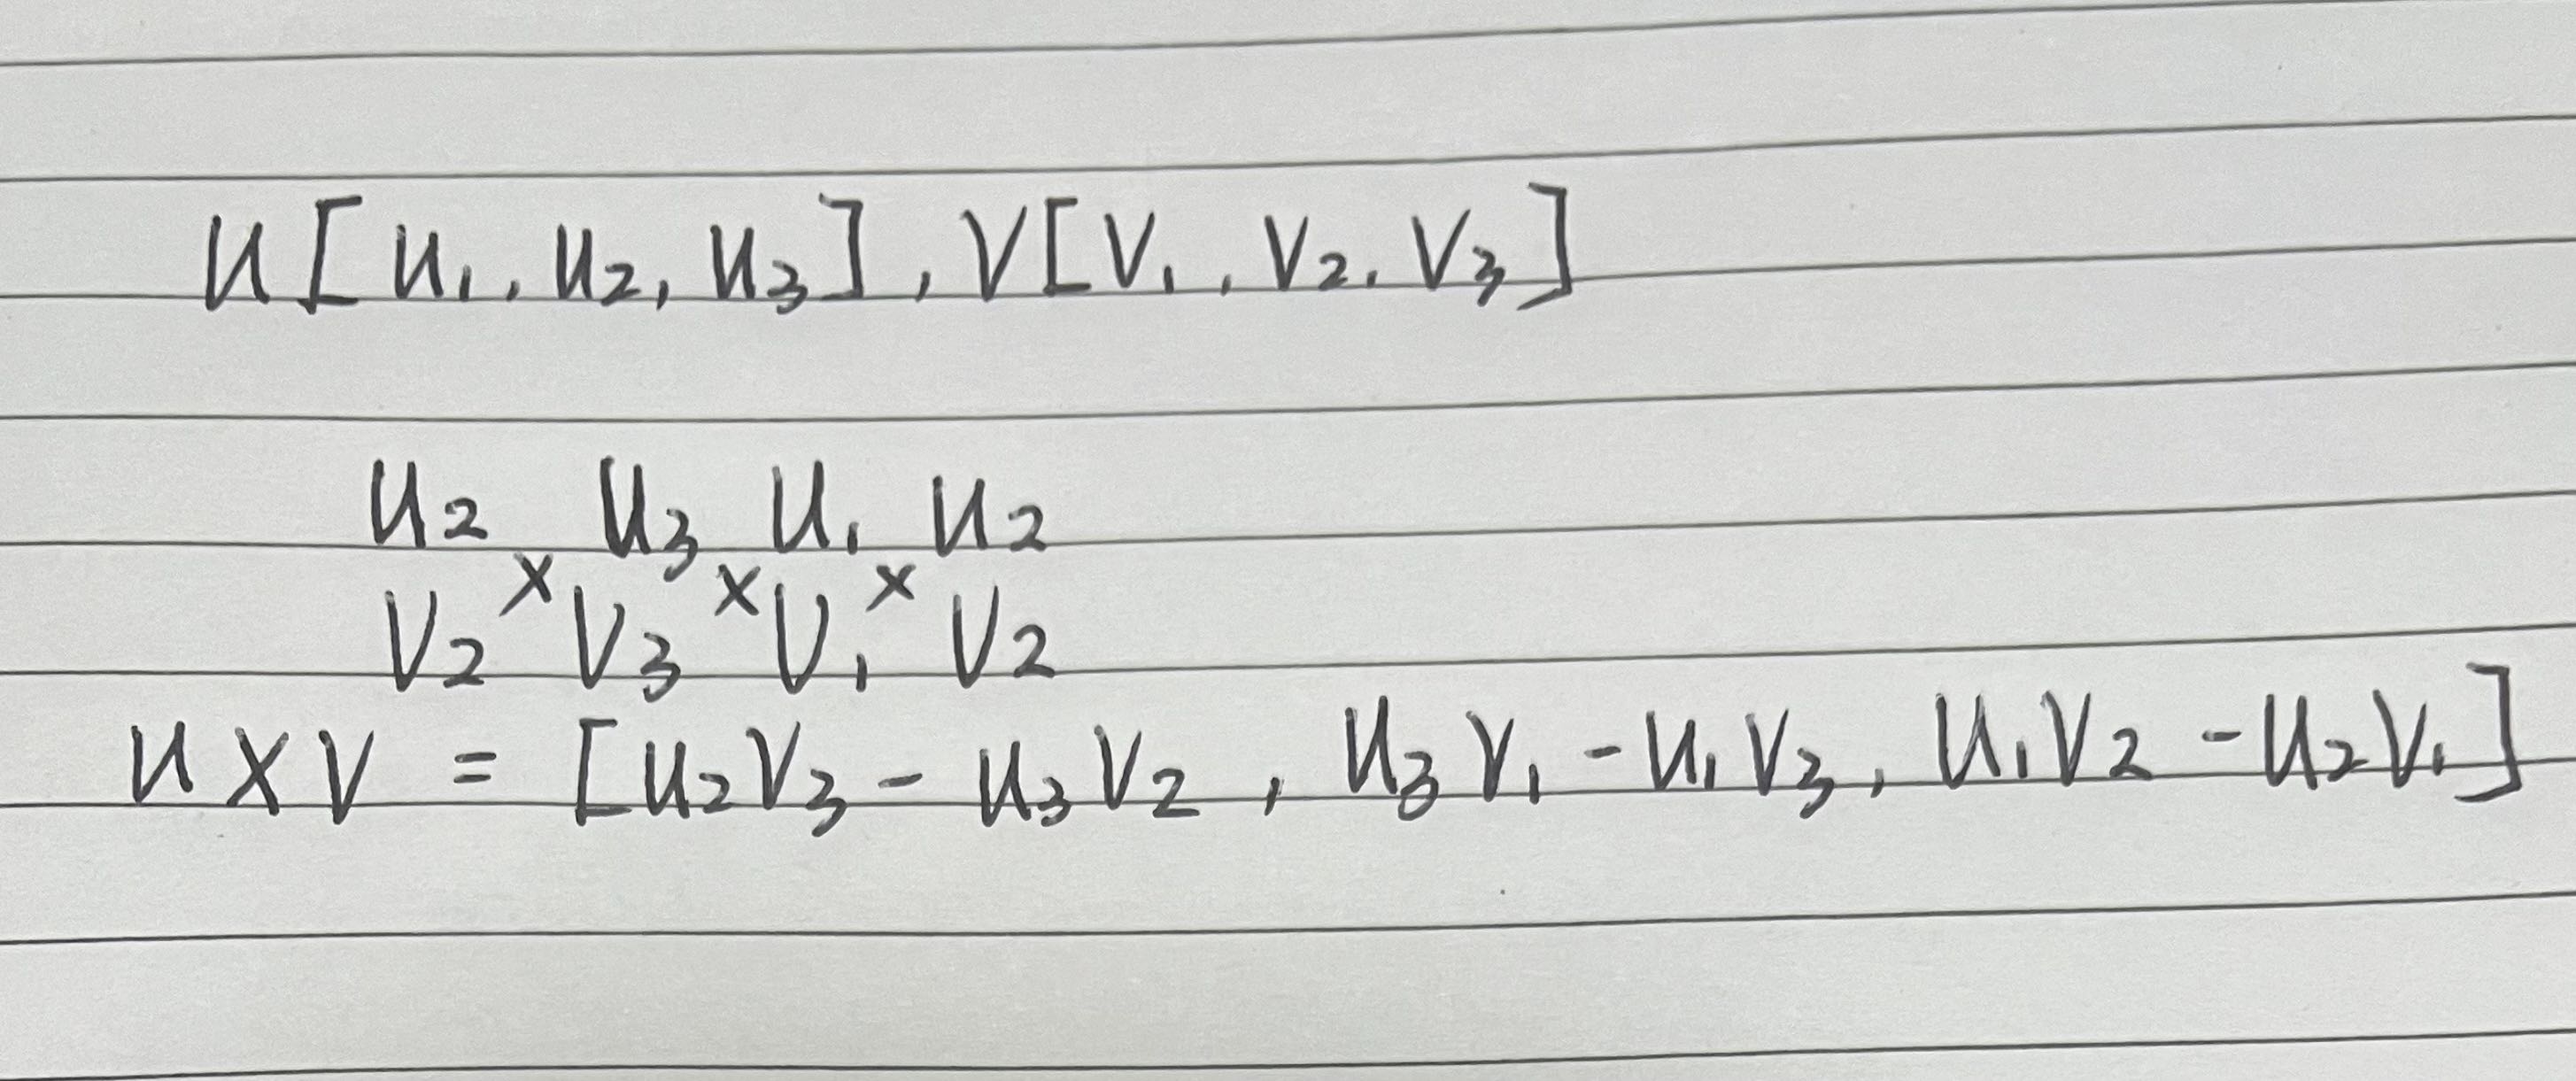 u[u₁, u₂, u₃], V[V₁, V₂, V₃]
u₂ u₃ u₁ u₂
× × ×
V₂ V₃ V₁ V₂
u×V = [u₂V₃ - u₃V₂, u₃V₁ - u₁V₃, u₁V₂ - u₂V₁]